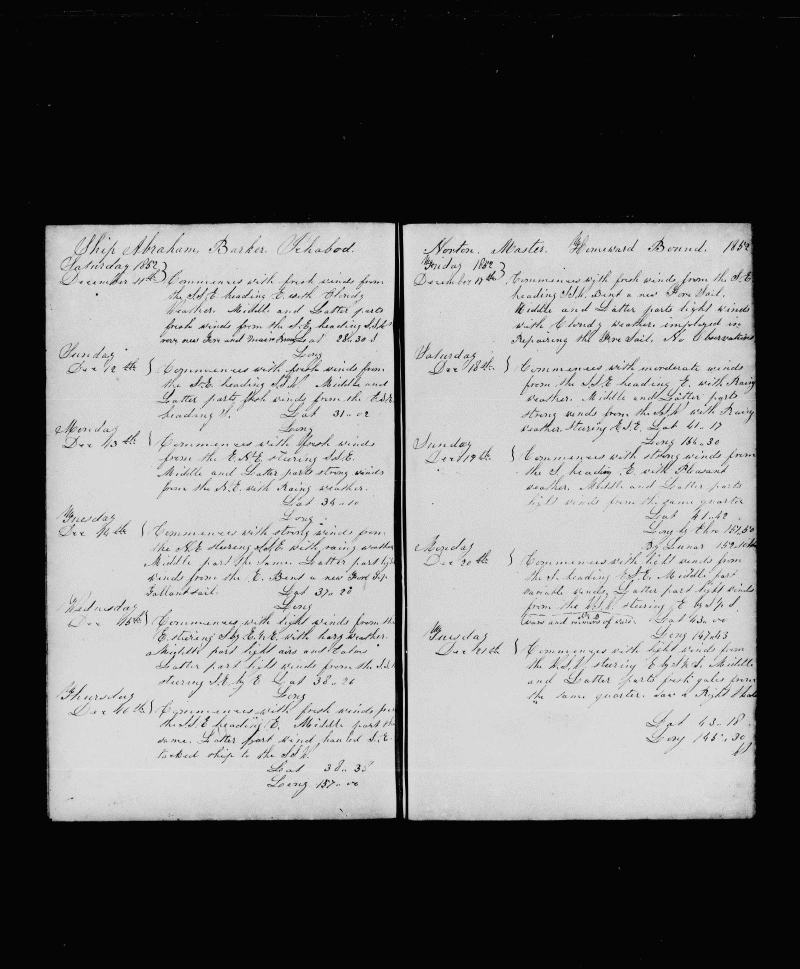 Ship Abraham Barker Ichabod
Saturday 1852
December 11th } Commences with fresh winds from
the S.S.E. heading E. with Cloudy
weather. Middle and Latter parts
fresh winds from the S.E. heading S.S.W
new Fore and Main Lat 28.. 30 S
Long
Sunday
Dec 12th } Commences with fresh winds from
the S.E. heading S.S.W. Middle and
Latter parts fresh winds from the E.S.E.
heading S. Lat 31.. 02
Long
Monday
Dec 13th } Commences with fresh winds
from the E.N.E. stearing S.S.E.
Middle and Latter parts strong winds
from the N.E. with Rainy weather.
Lat 34.. 10
Long
Tuesday
Dec 14th } Commences with strong winds from
the N.E. stearing S.S.E. with rainy weather
Middle part the same. Latter part light
winds from the E. Bent a new Fore Top
Gallant sail. Lat 37.. 20
Long
Wednesday
Dec 15th } Commences with light winds from the
E. stearing S. by E. ½ E. with hazy weather.
Middle part light airs and Calms
Latter part light winds from the
stearing S.E. by E Lat 38.. 26
Long
Thursday
Dec 16th } Commences with fresh winds from
the S.S.E. heading E. Middle part the
same. Latter part wind hauled S.E.
tacked ship to the S.S.W.
Lat 38.. 38
Long 157.. 00
Norton. Master. Homeward Bound. 1852
Friday 1852
December 17th } Commences with fresh winds from the S.E.
heading S.S.W. Bent a new Fore Sail.
Middle and Latter parts light winds
with Cloudy weather. imployed in
Repairing the Fore Sail. No Observations
Saturday
Dec 18th } Commences with morderate winds
from the S.S.E. heading E. with Rainy
weather. Middle and Latter parts
strong winds from the S.S.W. with Rainy
weather. Stearing E.S.E. Lat 41.. 17
Long 154.. 30
Sunday
Dec 19th } Commences with strong winds from
the S. heading E. with Pleasant
weather. Middle and Latter parts
light winds from the same quarter
Lat 41.. 42
Long by Chro 151,50
By Lunar 152..
Monday
Dec 20th } Commences with light winds from
the S. heading E.S.E. Middle part
variable winds, Latter part light winds
from the stearing E by S ½ S.
Lat 43.. 00
Long 147.. 43
Tuesday
Dec 21st } Commences with light winds from
the stearing E by S ½ S. Middle
and Latter parts fresh gales from
the same quarter. saw a Right Whale
Lat 43.. 18
Long 145.. 30